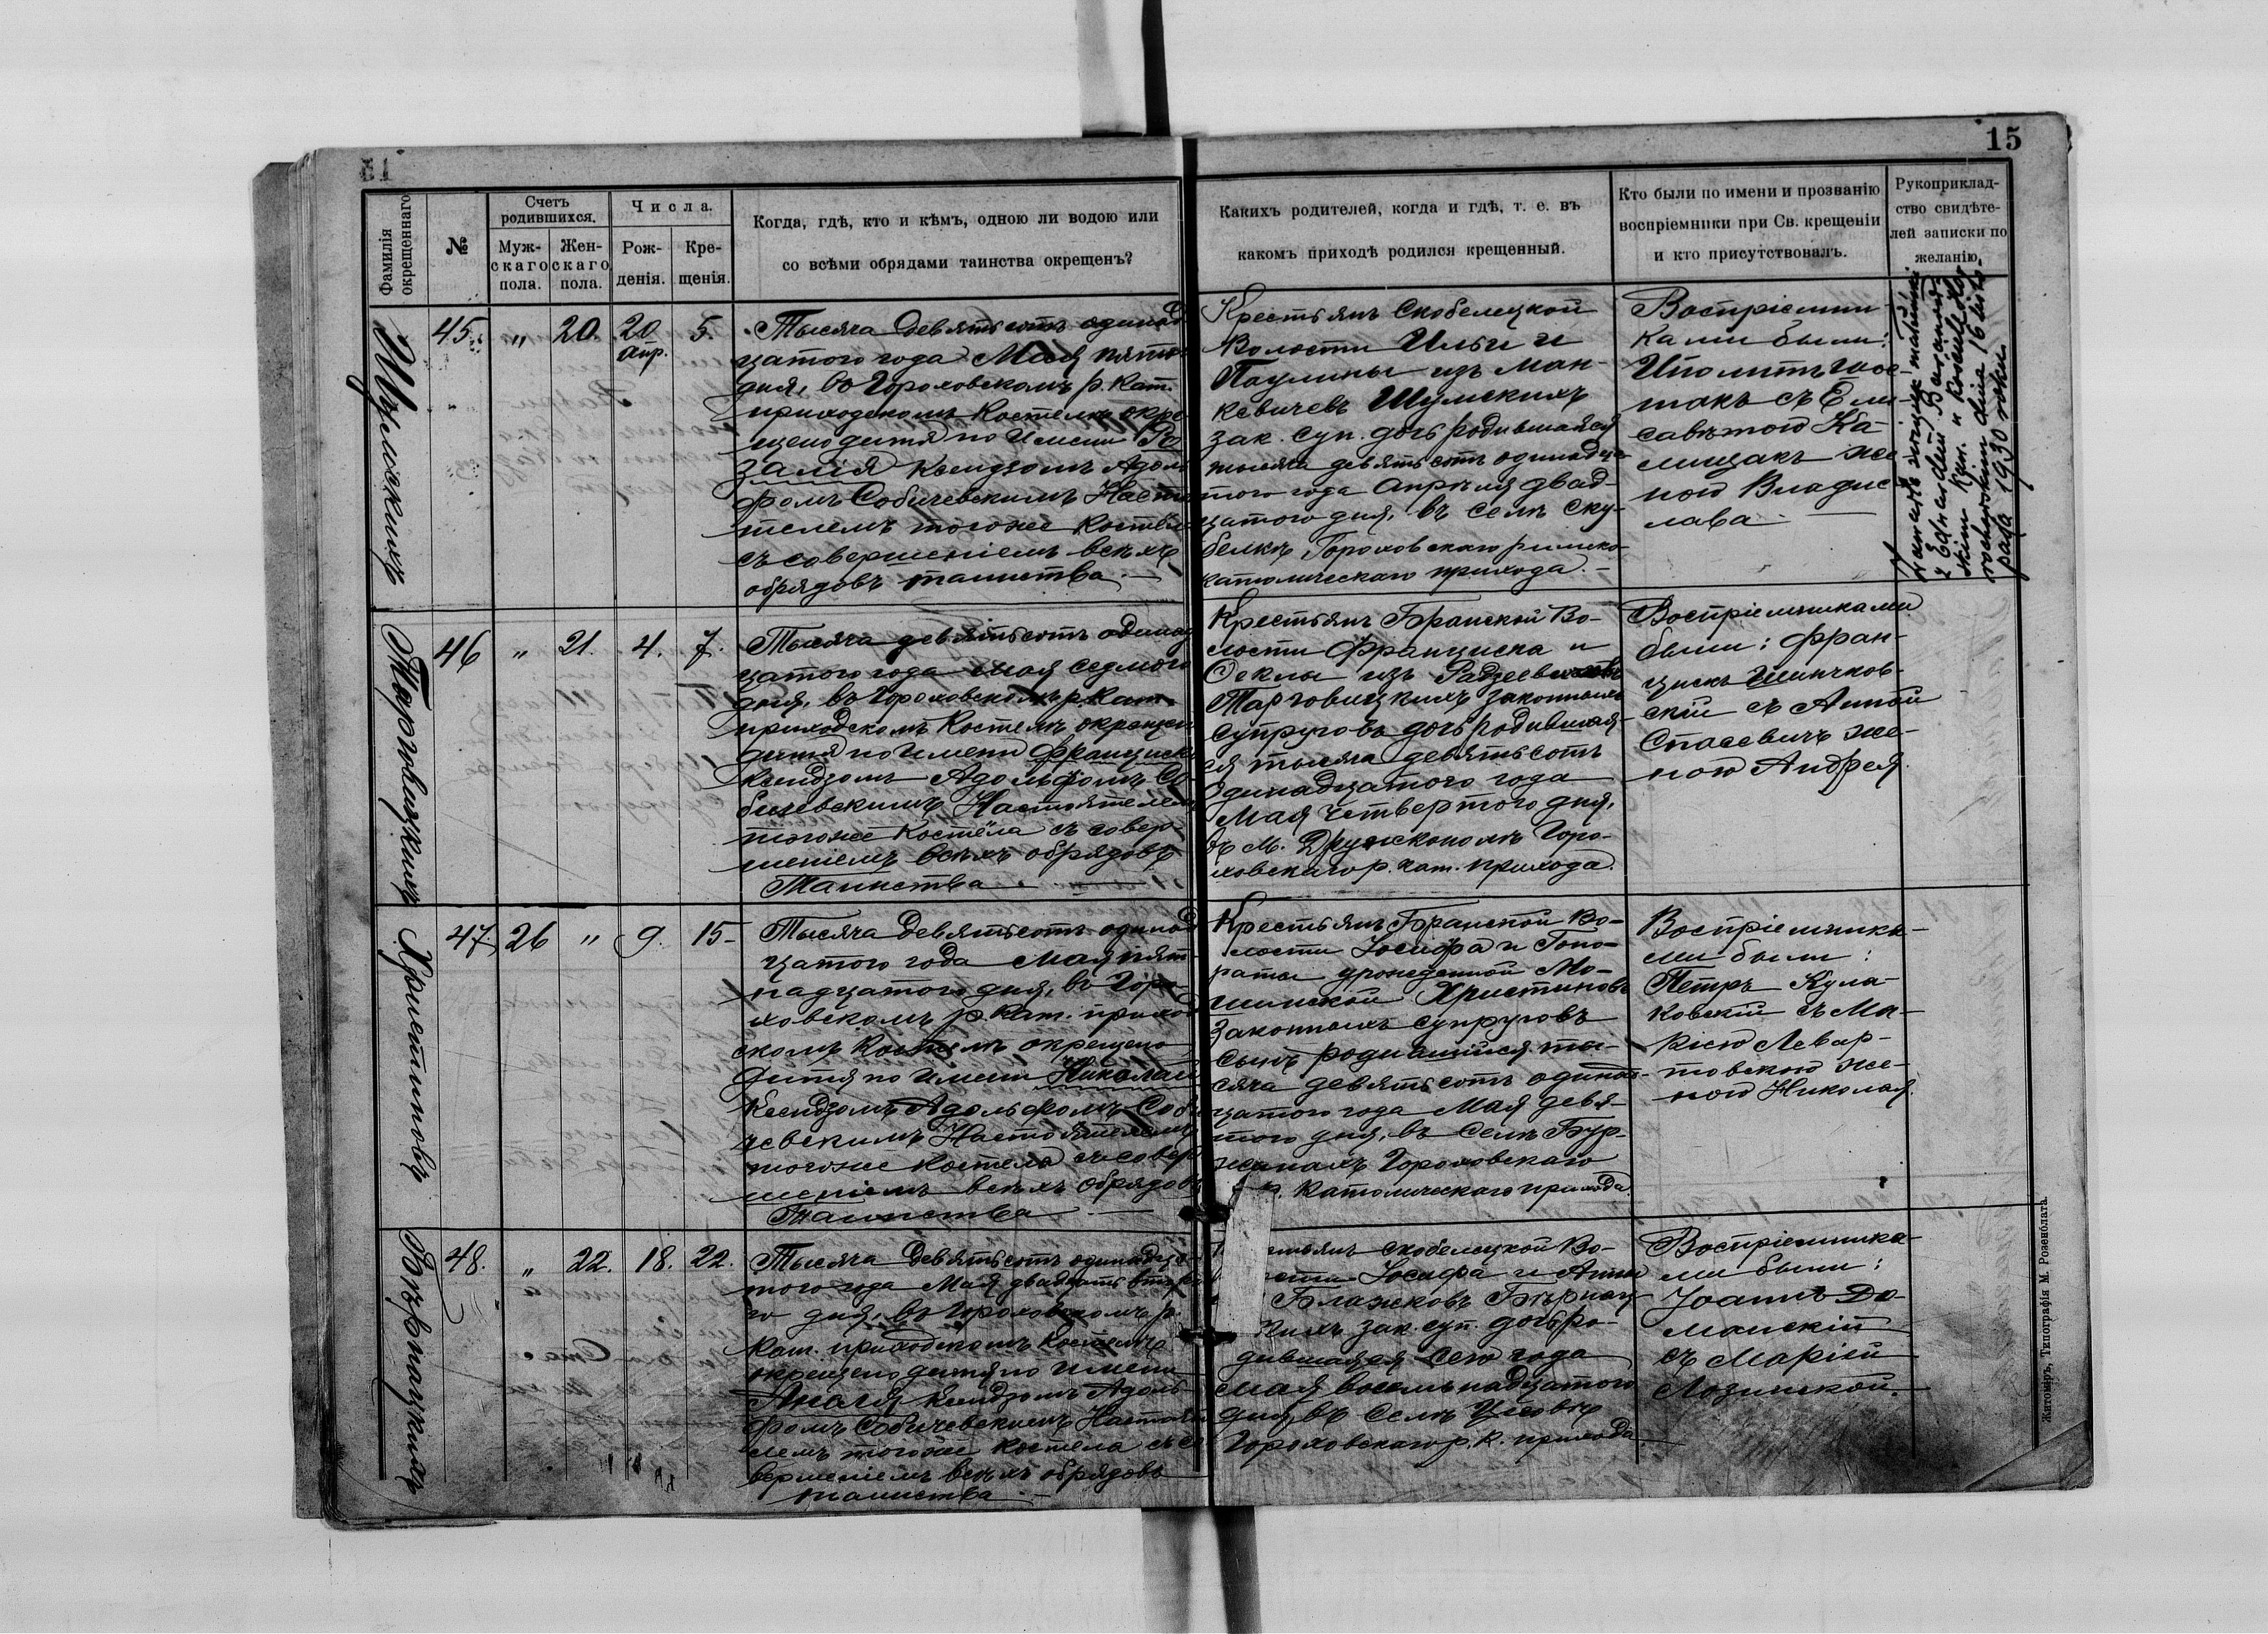 15
Фамилія
окрещеннаго
№
Счетъ
родившихся.
Муж-
скаго
пола.
Жен-
скаго
пола.
Числа.
Рож-
денія.
Кре-
щенія.
Когда, гдѣ, кто и кѣмъ, одною ли водою или
со всѣми обрядами таинства окрещенъ?
Какихъ родителей, когда и гдѣ, т. е. въ
какомъ приходѣ родился крещенный.
Кто были по имени и прозванію
воспріемники при Св. крещеніи
и кто присутствовалъ.
Рукоприклад-
ство свидѣте-
лей записки по
желанію.
Шумскихъ
45.
"
20.
20
апр.
5.
Тысяча девятьсотъ одинад
цатого года Мая пятого
дня, въ Гороховскомъ р. кат.
приходскомъ Костелѣ окре
щено дитя по имени Ро
залія Ксендзомъ Адоль
фомъ Собичевскимъ Насто
телемъ тогоже костёла
съ совершеніемъ всѣхъ
обрядовъ таинства.
Крестьянъ Скобелецкой
Волости Ильи и
Паулины изъ Ман-
кевичевъ Шумскихъ
зак. суп. дочь родившаяся
тысяча девятьсотъ одинадца
того года Апрѣля двад-
цатого дня, въ селѣ Ску-
белкѣ Гороховскаго римско-
католическаго прихода.
Воспріемни
ками были:
Иполитъ
съ Ели
саветою Ка-
же
ною Владис
лава
1930 roku
Торговицкихъ
46
"
21.
4.
7.
Тысяча девятьсотъ одинад
цатого года мая седмого
дня, въ Гороховскомъ р. кат.
приходскомъ Костелѣ окрещено
дитя по имени Франциска
Ксендзомъ Адольфомъ Со-
бичевскимъ Настоятелемъ
тогоже Костёла съ совер-
шеніемъ всѣхъ обрядовъ
Таинства
Крестьянъ Бранской Во-
лости Франциска и
Феклы изъ Радзеевичовъ
Торговицкихъ законныхъ
супруговъ дочь родившая-
ся тысяча девятьсотъ
одинадцатого года
Мая четвертого дня,
въ м. Дружкополѣ Горо-
ховскаго р. кат. прихода.
Воспріемниками
были: Фран-
цискъ
скій съ Анной
Спасевичъ же-
ною Андрея
Христиновъ
47.
26
"
9.
15
Тысяча девятьсотъ одинад
цатого года мая пят-
надцатого дня, въ Горо-
ховскомъ р. кат. приход
скомъ Костелѣ окрещено
дитя по имени Николай
Ксендзомъ Адольфомъ Соби
чевскимъ Настоятелемъ
тогоже костела съ совер
шеніемъ всѣхъ обрядовъ
Таинства
Крестьянъ Бранской Во-
лости Іосифа и Гоно-
раты урожденной Мо-
шинской Христиновъ
Законныхъ супруговъ
сынъ родившійся ты-
сяча девятьсотъ одинад-
цатого года Мая девя-
того дня, въ Селѣ Бур-
жанахъ Гороховскаго
католическаго прихода.
Воспріемника-
ми были:
Петръ Кула
ковскій съ Ма-
ріею Левар-
товскою же-
ною Николая.
48.
"
22.
18.
22.
Тысяча девятьсотъ одинадца
того года Мая двадцать второ
го дня, въ Гороховскомъ р.
кат. приходскомъ костелѣ
окрещено дитя по имени
Ксендзомъ Адоль
фомъ Собичевскимъ Настояте
лемъ тогоже костела съ со
вершеніемъ всѣхъ обрядовъ
таинства
Скобелецкой Во-
Іосифа и Анны
Блажковъ
зак. суп. дочь ро-
дившаяся сего года
мая восемьнадцатого
дня, въ Селѣ
Гороховскаго р. к. прихода
Воспріемника-
ми были:
Іоаннъ До-
манскій
съ Маріей
Лозинской.
Житоміръ, Типографія М. Розенблата.